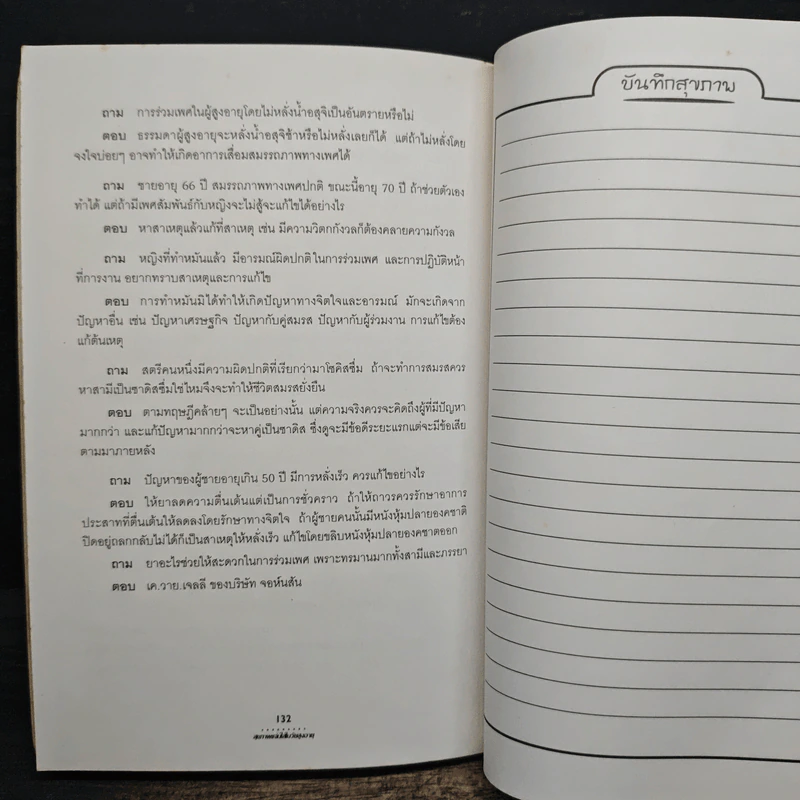 ถาม การร่วมเพศในผู้สูงอายุโดยไม่หลั่งน้ำอสุจิเป็นอันตรายหรือไม่
ตอบ ธรรมดาผู้สูงอายุจะหลั่งน้ำอสุจิช้าหรือไม่หลั่งเลยก็ได้ แต่ถ้าไม่หลั่งโดย
จงใจบ่อยๆ อาจทำให้เกิดอาการเสื่อมสมรรถภาพทางเพศได้
ถาม ชายอายุ 66 ปี สมรรถภาพทางเพศปกติ ขณะนี้อายุ 70 ปี ถ้าช่วยตัวเอง
ทำได้ แต่ถ้ามีเพศสัมพันธ์กับหญิงจะไม่สู้จะแก้ไขได้อย่างไร
ตอบ หาสาเหตุแล้วแก้ที่สาเหตุ เช่น มีความวิตกกังวลก็ต้องคลายความกังวล
ถาม หญิงที่ทำหมันแล้ว มีอารมณ์ผิดปกติในการร่วมเพศ และการปฏิบัติหน้า
ที่การงาน อยากทราบสาเหตุและการแก้ไข
ตอบ การทำหมันมิได้ทำให้เกิดปัญหาทางจิตใจและอารมณ์ มักจะเกิดจาก
ปัญหาอื่น เช่น ปัญหาเศรษฐกิจ ปัญหากับคู่สมรส ปัญหากับผู้ร่วมงาน การแก้ไขต้อง
แก้ต้นเหตุ
ถาม สตรีคนหนึ่งมีความผิดปกติที่เรียกว่ามาโซคิสซึ่ม ถ้าจะทำการสมรสควร
หาสามีเป็นซาดิสซึ่มใช่ไหมจึงจะทำให้ชีวิตสมรสยั่งยืน
ตอบ ตามทฤษฎีคล้ายๆ จะเป็นอย่างนั้น แต่ความจริงควรจะคิดถึงผู้ที่มีปัญหา
มากกว่า และแก้ปัญหามากกว่าจะหาคู่เป็นซาดิส ซึ่งดูจะมีข้อดีระยะแรกแต่จะมีข้อเสีย
ตามมาภายหลัง
ถาม ปัญหาของผู้ชายอายุเกิน 50 ปี มีการหลั่งเร็ว ควรแก้ไขอย่างไร
ตอบ ให้ยาลดความตื่นเต้นแต่เป็นการชั่วคราว ถ้าให้ถาวรควรรักษาอาการ
ประสาทที่ตื่นเต้นให้ลดลงโดยรักษาทางจิตใจ ถ้าผู้ชายคนนั้นมีหนังหุ้มปลายองคชาติ
ปิดอยู่ถลกกลับไม่ได้ก็เป็นสาเหตุให้หลั่งเร็ว แก้ไขโดยขลิบหนังหุ้มปลายองคชาตออก
ถาม ยาอะไรช่วยให้สะดวกในการร่วมเพศ เพราะทรมานมากทั้งสามีและภรรยา
ตอบ เค.วาย.เจลลี่ ของบริษัท จอห์นสัน
132
บันทึกสุขภาพ